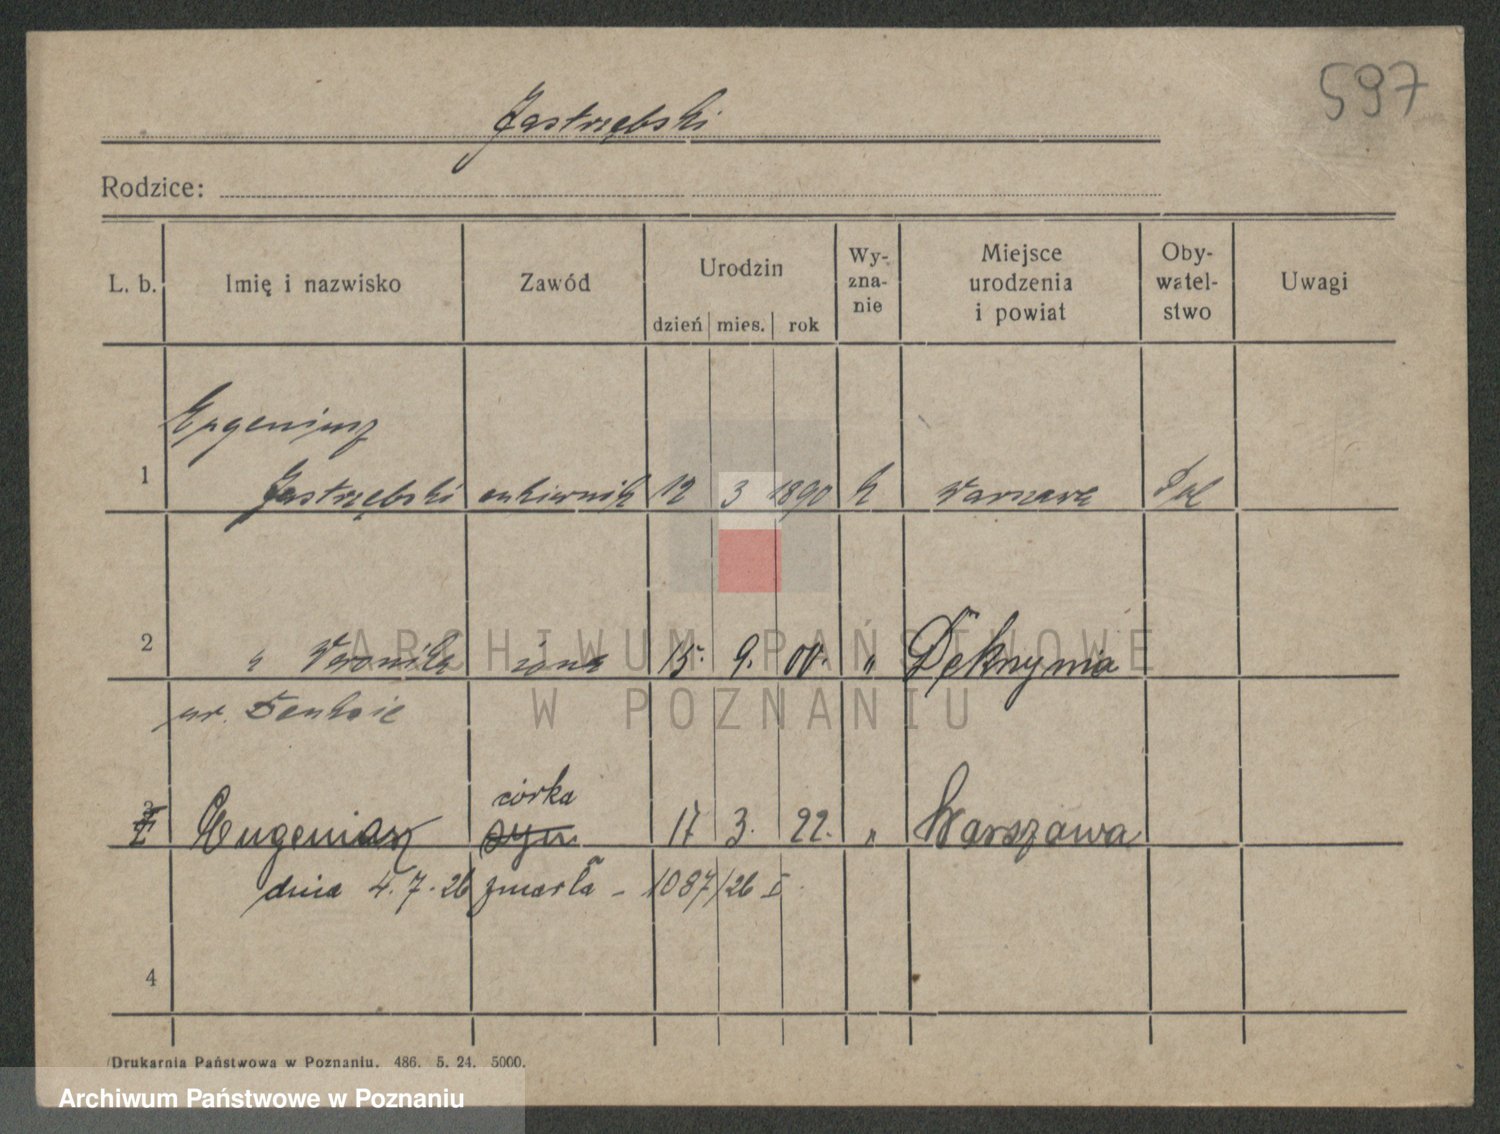 597
Jastrzębski
Rodzice:
L. b. Imię i nazwisko Zawód Urodzin dzień mies. rok Wy-zna-nie Miejsce urodzenia i powiat Oby-watel-stwo Uwagi
Eugeniusz
1 Jastrzębski cukiernik 12 3 1890 k Warszawa Pol
2 " Weronika żona 15. 9. 00. "
ur.
3 Eugeniusz córka syn 17 3. 22. " Warszawa
dnia 4.7.26 zmarła - 1087/26 I.
4
Drukarnia Państwowa w Poznaniu. 486. 5. 24. 5000.
ARCHIWUM PAŃSTWOWE
W POZNANIU
Archiwum Państwowe w Poznaniu